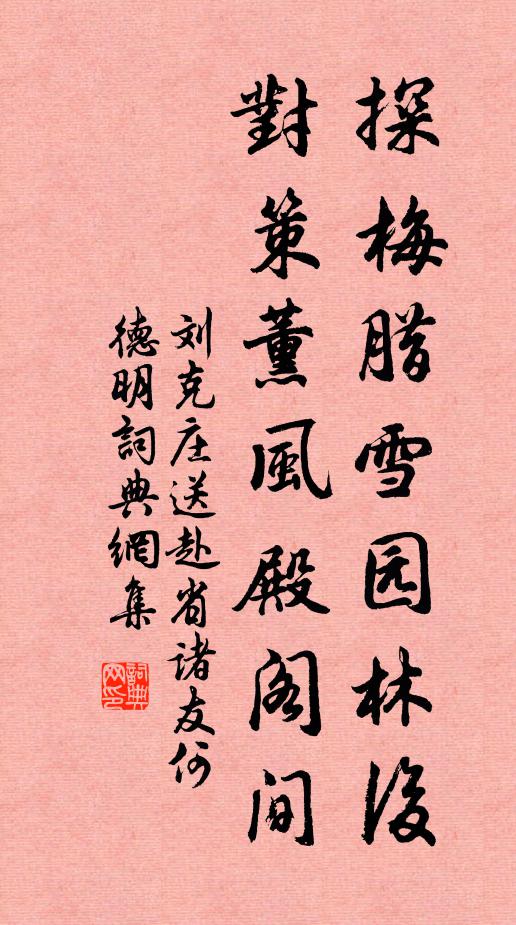 探梅腊雪园林後
對策薰風殿阁间
刘克庄送赴省诸友何
德明詞典網集
詞典网印